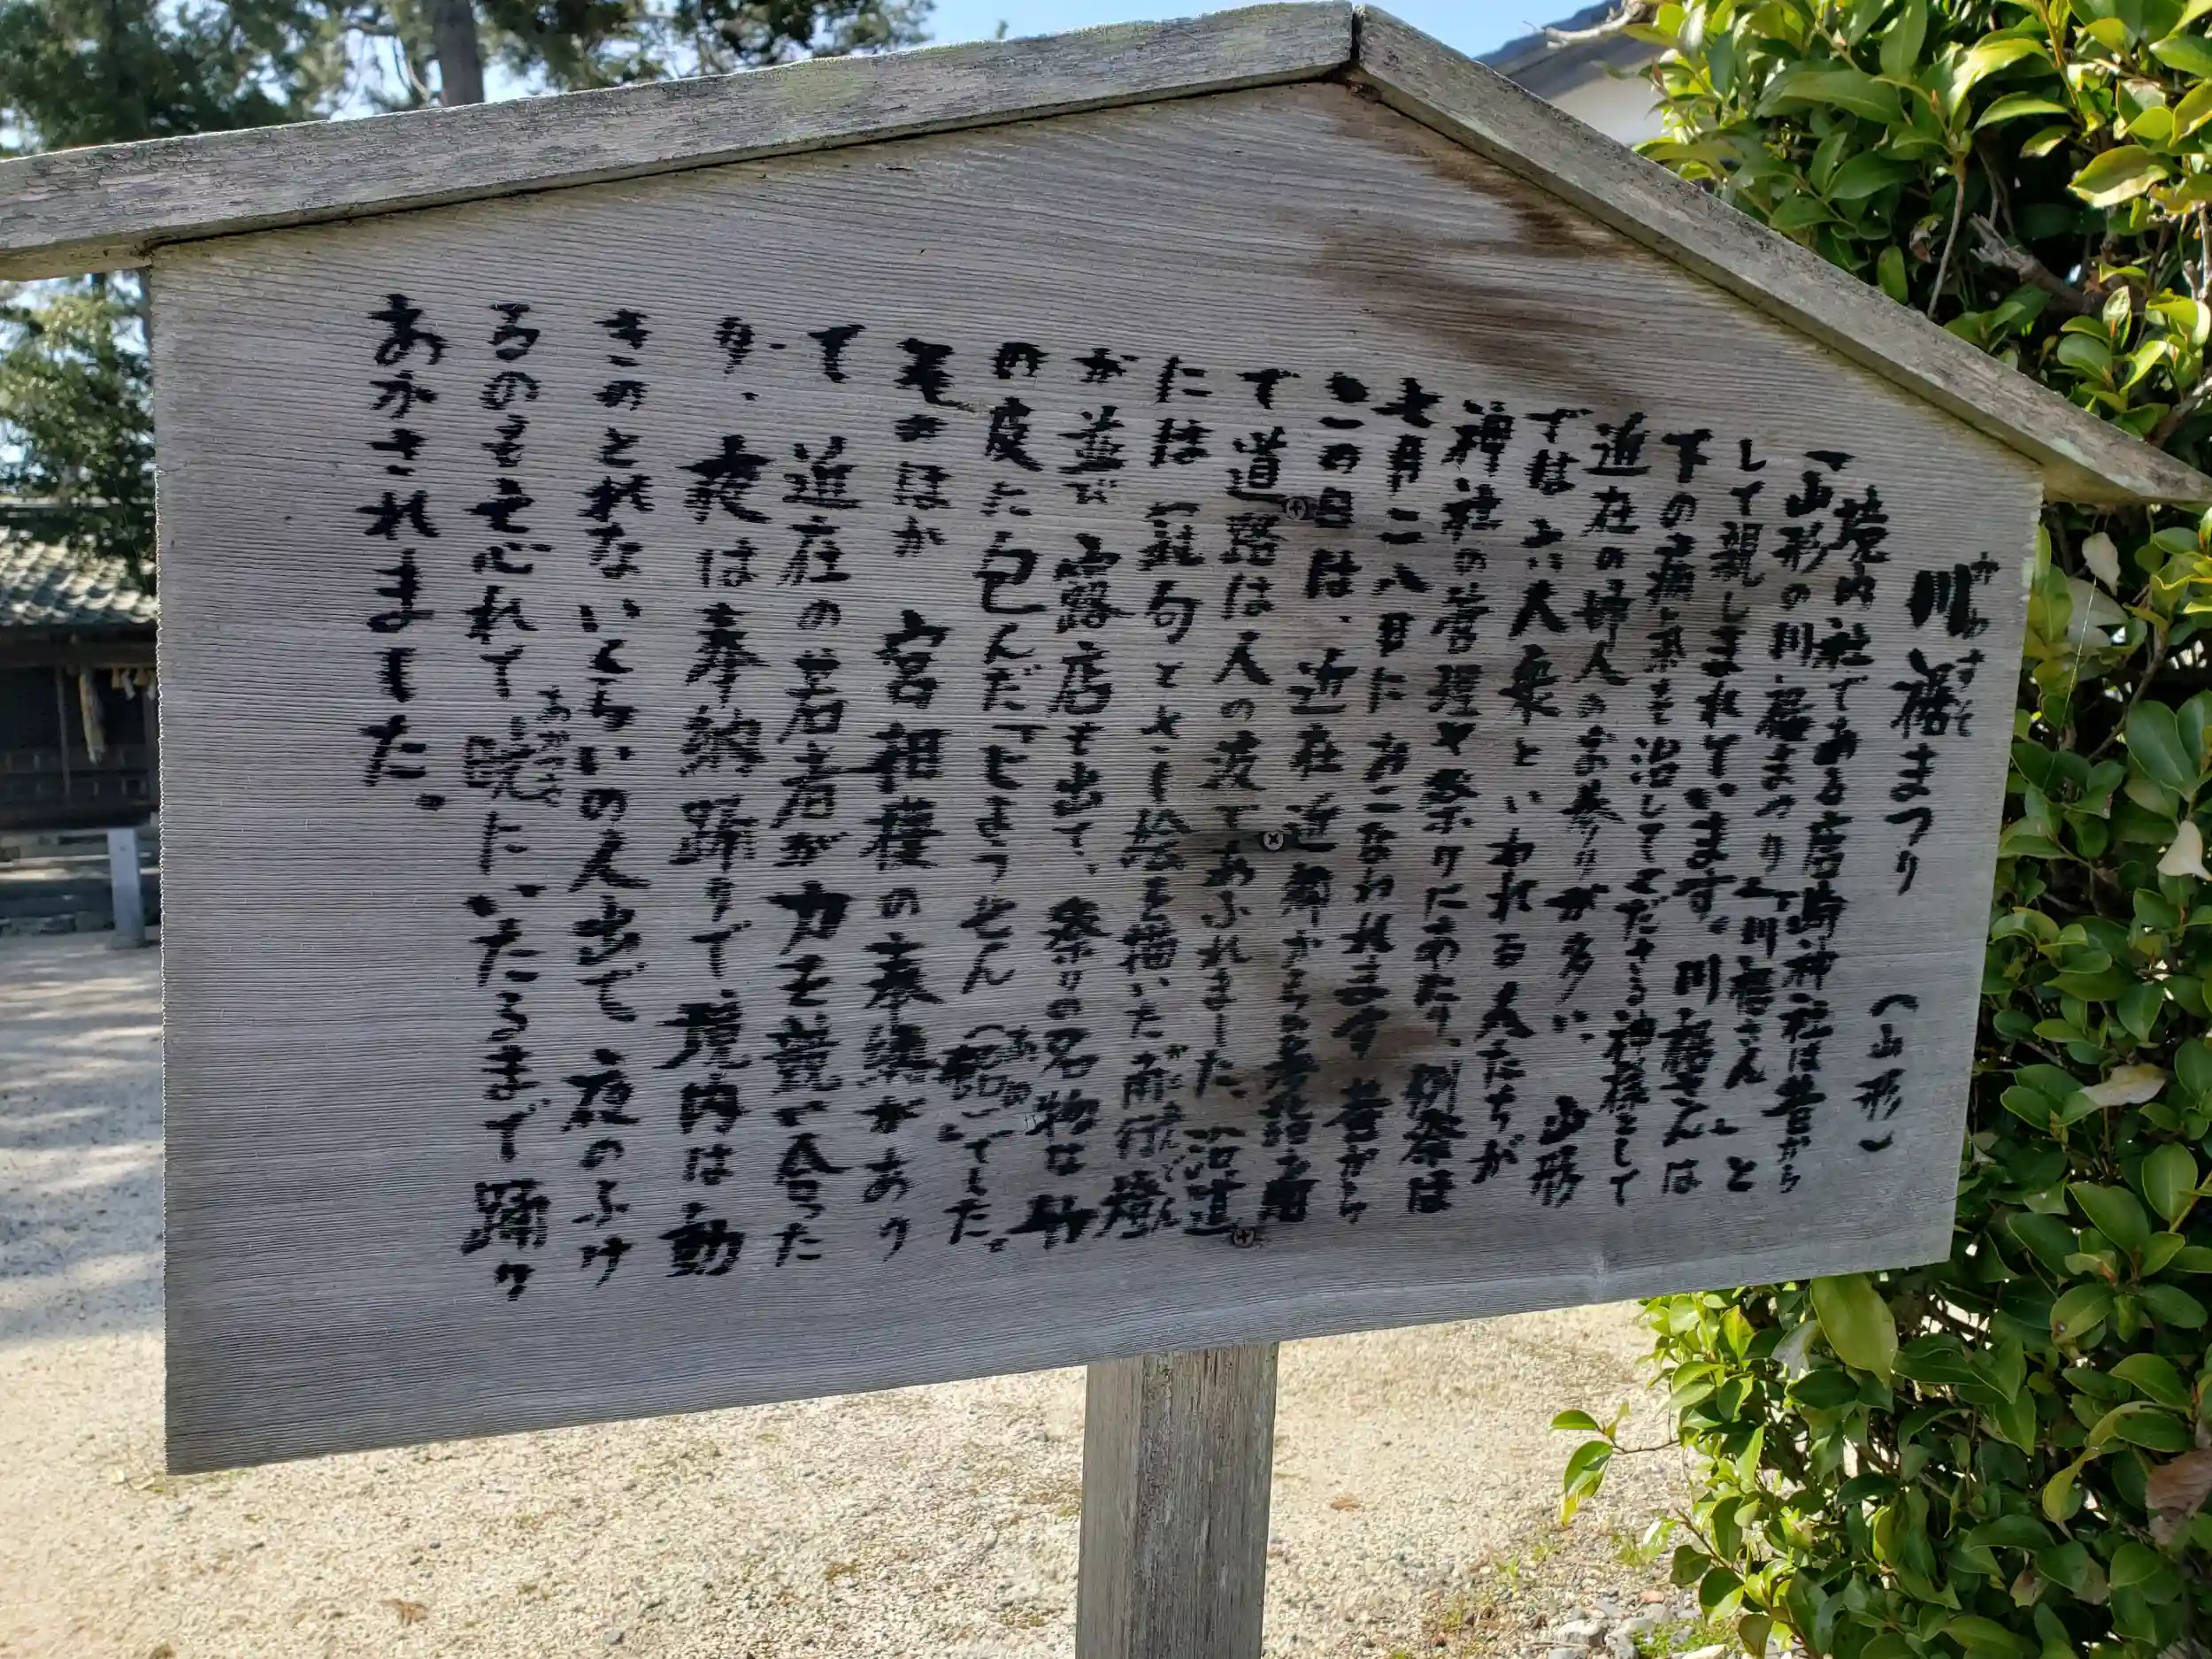 川裾まつり (山形)
かわすそ
境内社である唐崎神社は昔から
「山形の川裾まつり」「川裾さん」と
して親しまれています。川裾さんは
下の病気を治してくださる神様として
近在の婦人のお参りが多い、山形
では六人衆といわれる人たちが
神社の管理や祭りにあたり、例祭は
七月二八日におこなわれます 昔から
この日は、近在近郷からの参詣者
で道路は人の波であふれました、沿道
には「雑句とさし絵を描いた前行燈
がぜんでん
が並び 露店も出て、祭りの名物は 竹
の皮に包んだ「ヒョウセん(飴)でした。
あめ
そのほか 宮相撲の奉納があり
て 近在の若者が力を競い合った
り、夜は奉納踊りで境内は動
きのとれないくらいの人出で 夜のふけ
るのも忘れて暁にいたるまで踊り
あかつき
あかされました。